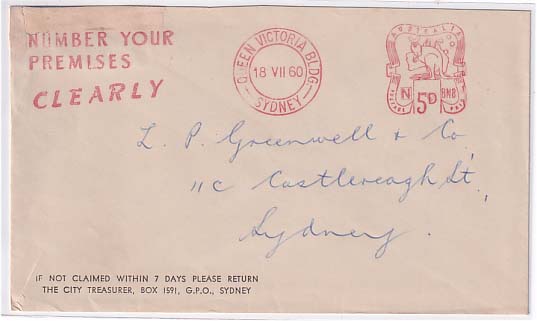 NUMBER YOUR
PREMISES
CLEARLY
QUEEN VICTORIA BLDG
18 VII 60
SYDNEY
AUSTRALIA
N 5D BN8
POSTAGE PAID
L. P. Greenwell & Co,
11c Castlereagh St,
Sydney.
IF NOT CLAIMED WITHIN 7 DAYS PLEASE RETURN
THE CITY TREASURER, BOX 1591, G.P.O., SYDNEY